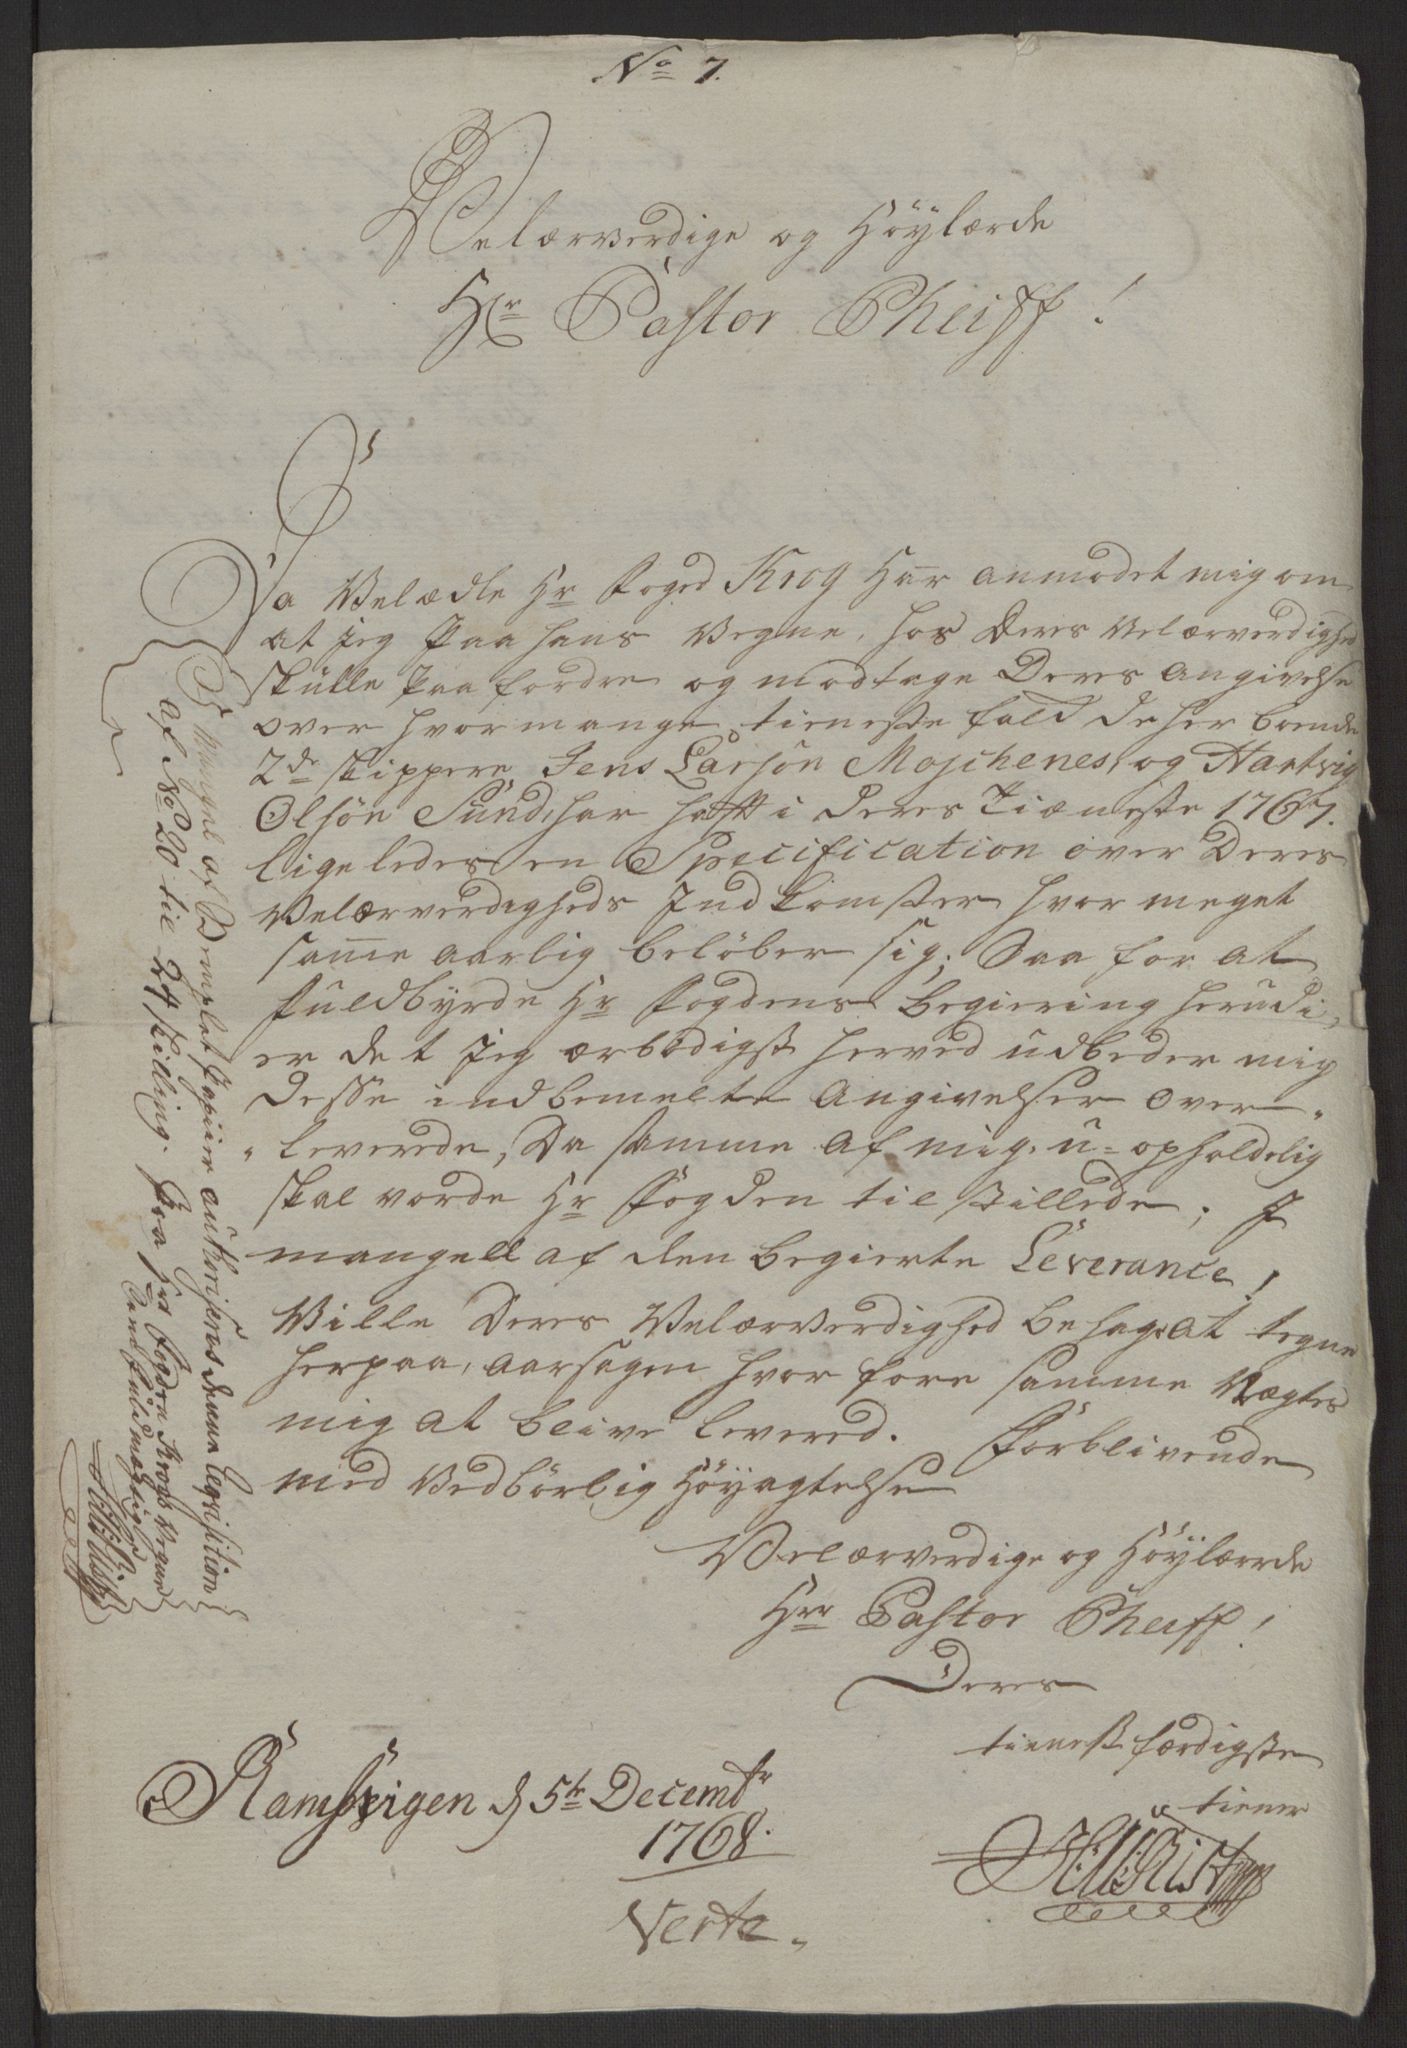 No 7.
Velærverdige og Höylærde
Hr Pastor Pheiff!
Da Velædle Hr Foged Krog har anmodet mig om
at jeg Paa hans Vegne, hos Deres Velærverdighed
skulle paa fordre og modtage Deres Angivelse
over hvor mange tieneste folck de her boende
2de skippere Jens Larsön Moschenes, og Hartvig
Olsön Sund, har hafft i deres Tieneste 1767.
ligeledes en Specification over Deres
Velærverdigheds Indkomster hvor meget
samme aarlig belöber sig; Saa for at
fuldbyrde Hr Fogdens Begiering herudi,
er det jeg ærbödigst herved udbeder mig
desse indbemelte Angivelser over-
leverede, Da samme af mig, u-opholdelig
skal vorde Hr Fogden til stillede; I
mangell af den begierte Leverance!
Ville Deres Velærverdighed behage at tegne
herpaa, aarsagen hvor fore samme Nægtes
mig at blive levered. Forblivende
med Vedbörlig Höyagtelse
Velærverdige og Höylærde
Hrr Pastor Pheiff!
Deres
tienest færdigste
tiener
Ramsvigen d 5te Decembr
1768.
Verte
I Mangel af Stemplet Papiir authoriseres denne Reqvisition
af No 20 til 24 skilling. Paa Hr Fogden Krogs Vegne